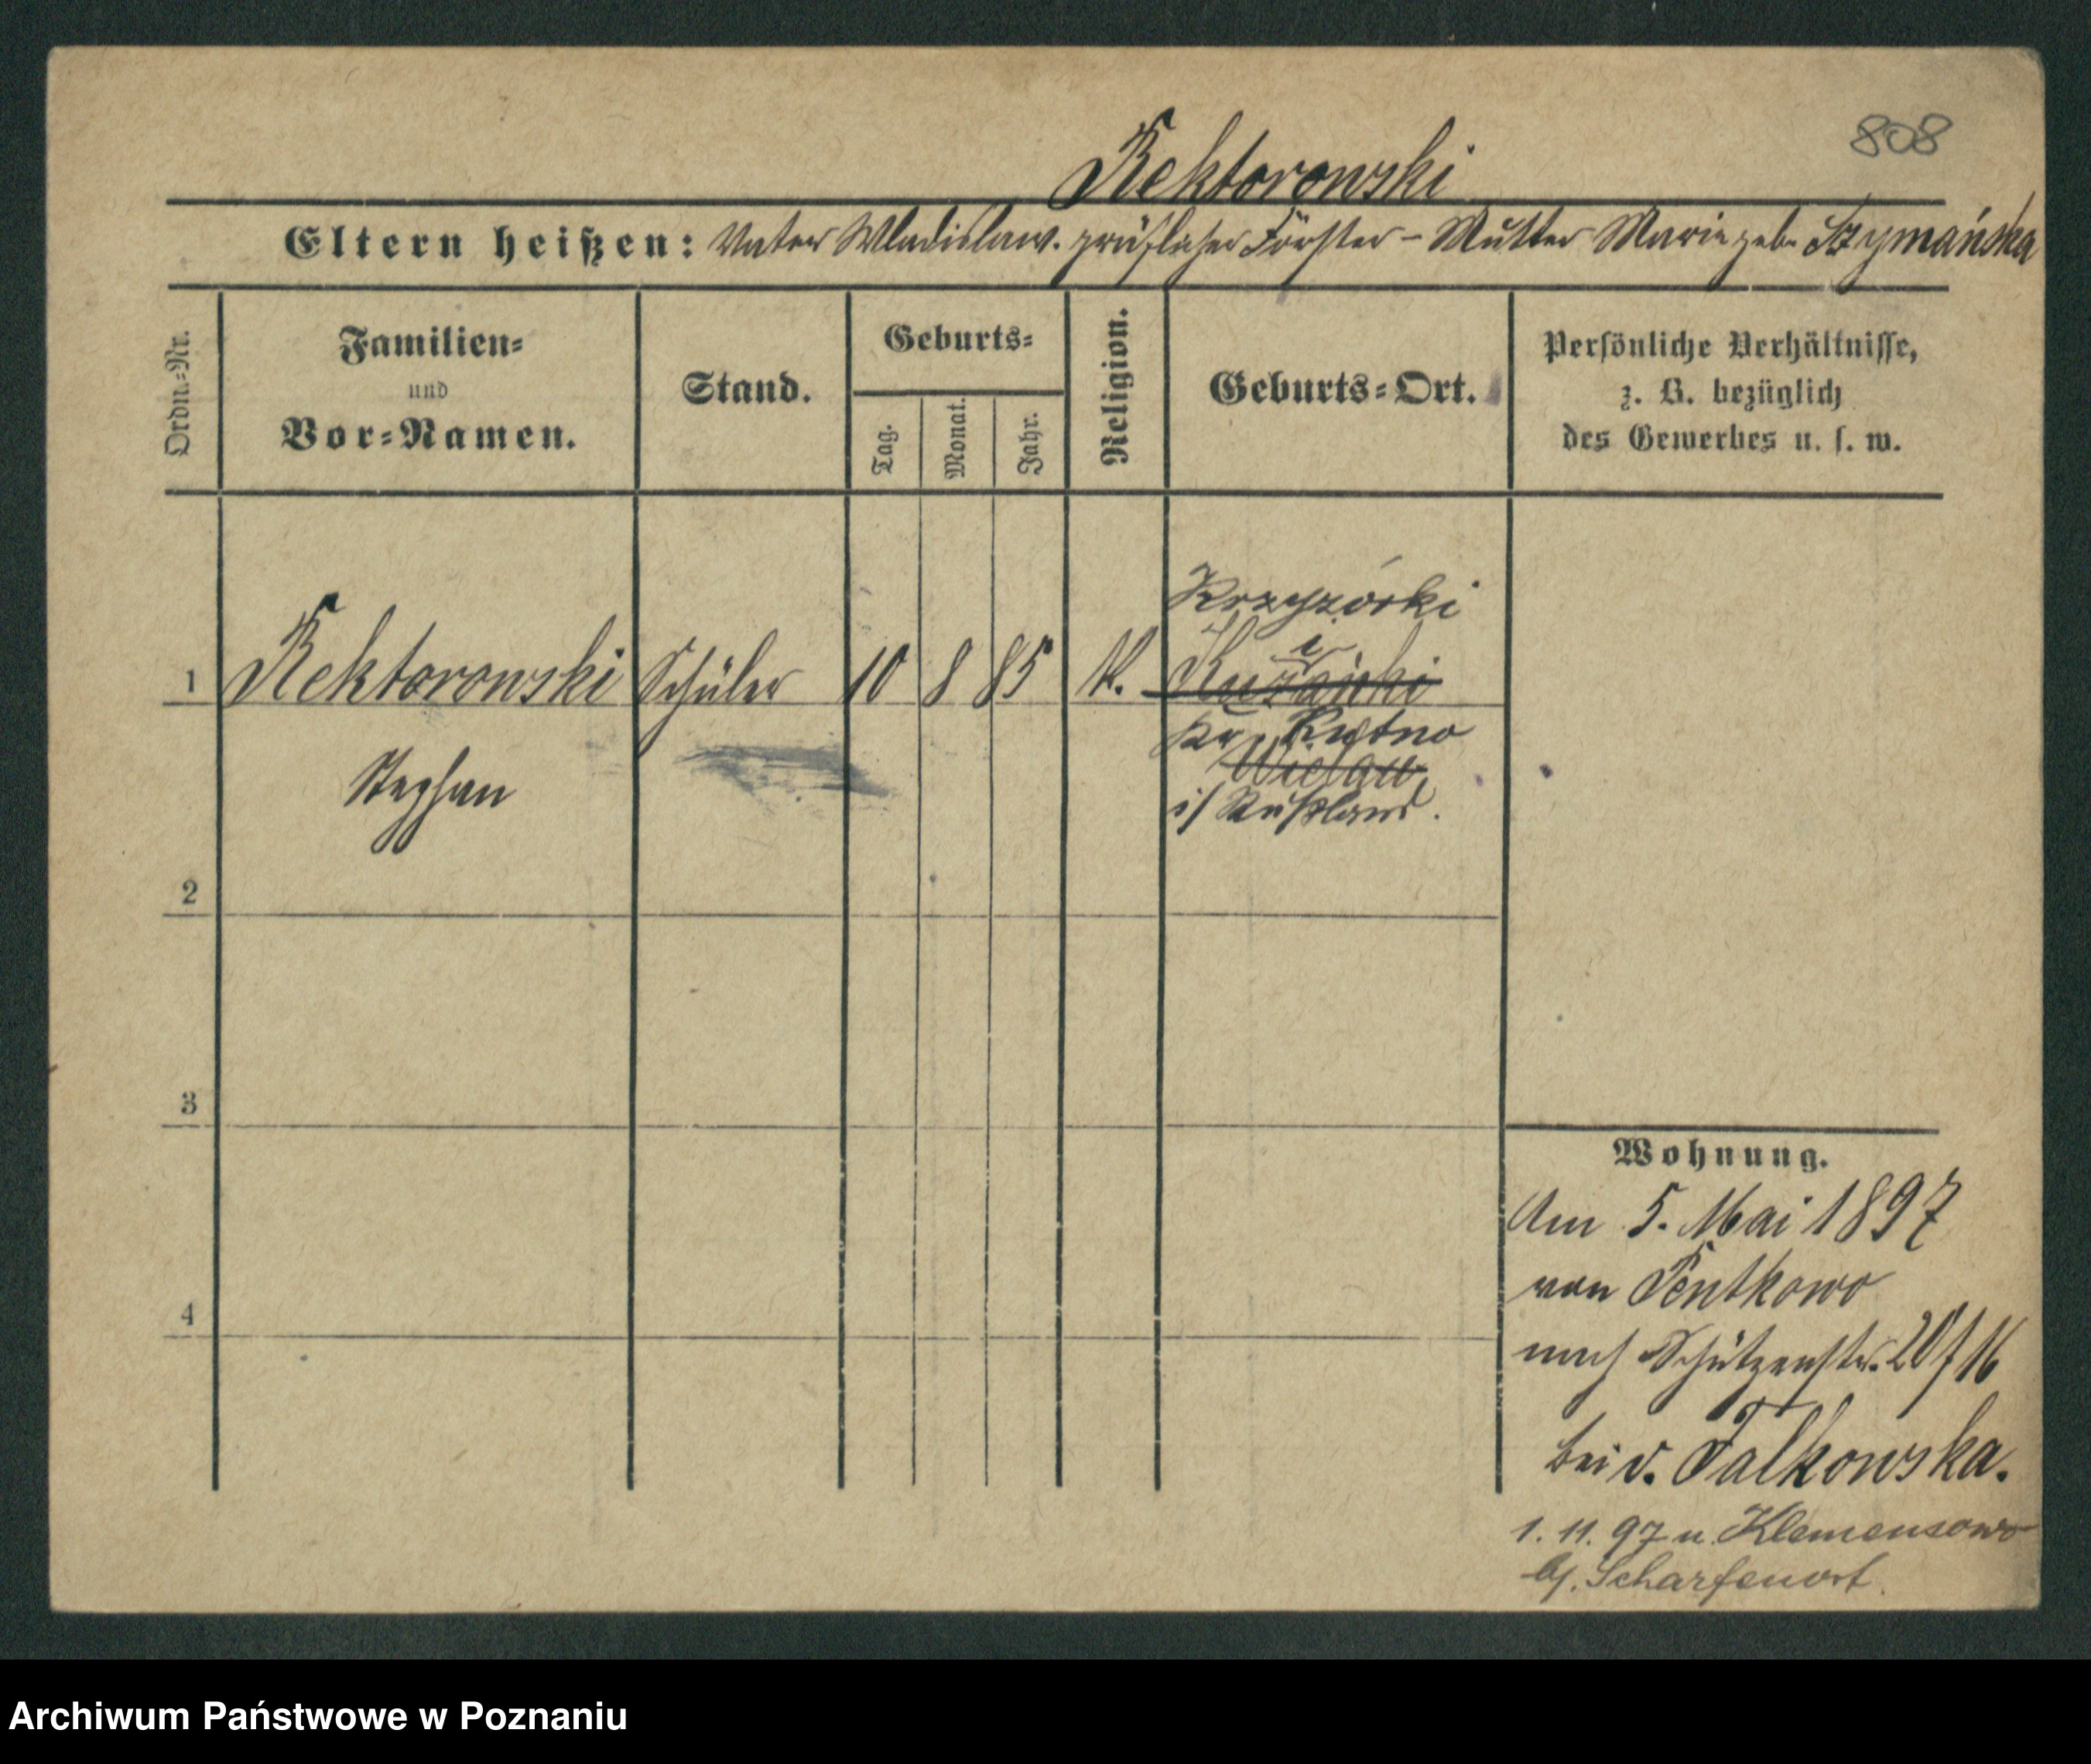 808
Rektorowski
Eltern heißen: Vater Wladislaw. gräflicher Förster – Mutter Marie geb. Szymańska
Ordn.-Nr.
Familien-
und
Vor-Namen.
Stand.
Geburts-
Tag.
Monat.
Jahr.
Religion.
Geburts-Ort.
Persönliche Verhältnisse,
z. B. bezüglich
des Gewerbes u. s. w.
1 Rektorowski Schüler 10 8 85 k.
Stephan
Kr. Kutno
i/ Rußland.
2
3
4
Wohnung.
Am 5. Mai 1897
von Pentkowo
nach Schützenstr. 20 / 16
bei v. Falkowska.
1. 11. 97 n. Klemensowo
b/. Scharfenort.
Archiwum Państwowe w Poznaniu